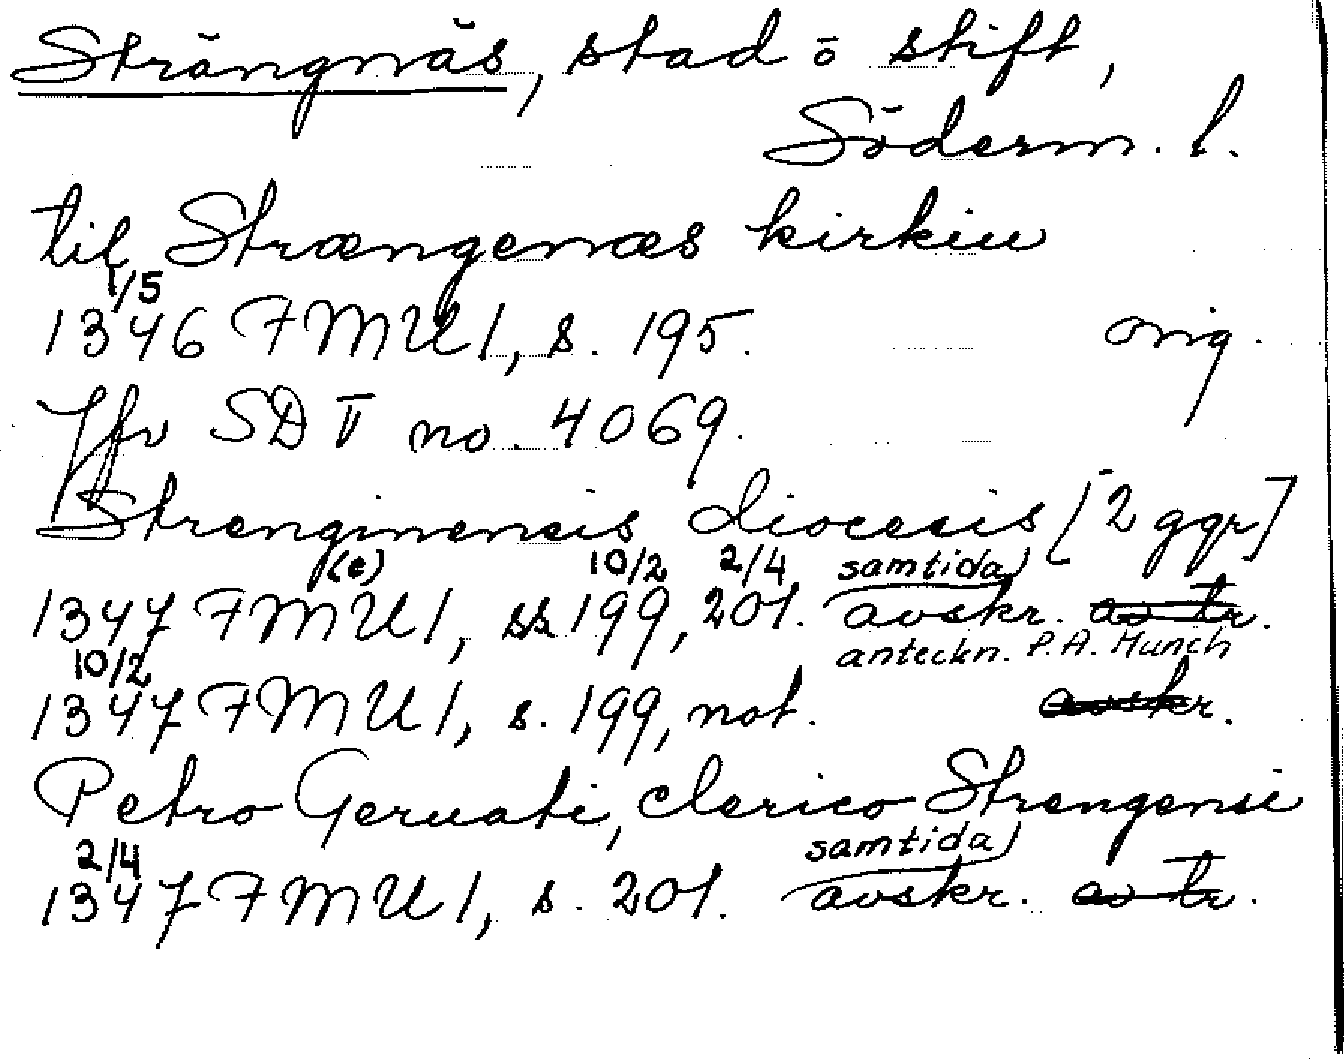 Strängnäs, stad o stift,
Söderm. l.
til Strængenæs kirkiu
1/5
1346 FMU 1, s. 195. orig.
Jfr SD V no. 4069.
Strenginensis diocesis [2 ggr]
(e) 10/2 2/4 samtida
1347 FMU 1, ss 199, 201. avskr. av tr.
10/2 anteckn. P. A. Munch
1347 FMU 1, s. 199, not. avskr.
Petro Geruati, clerico Strengensi
2/4 samtida
1347 FMU 1, s. 201. avskr. av tr.